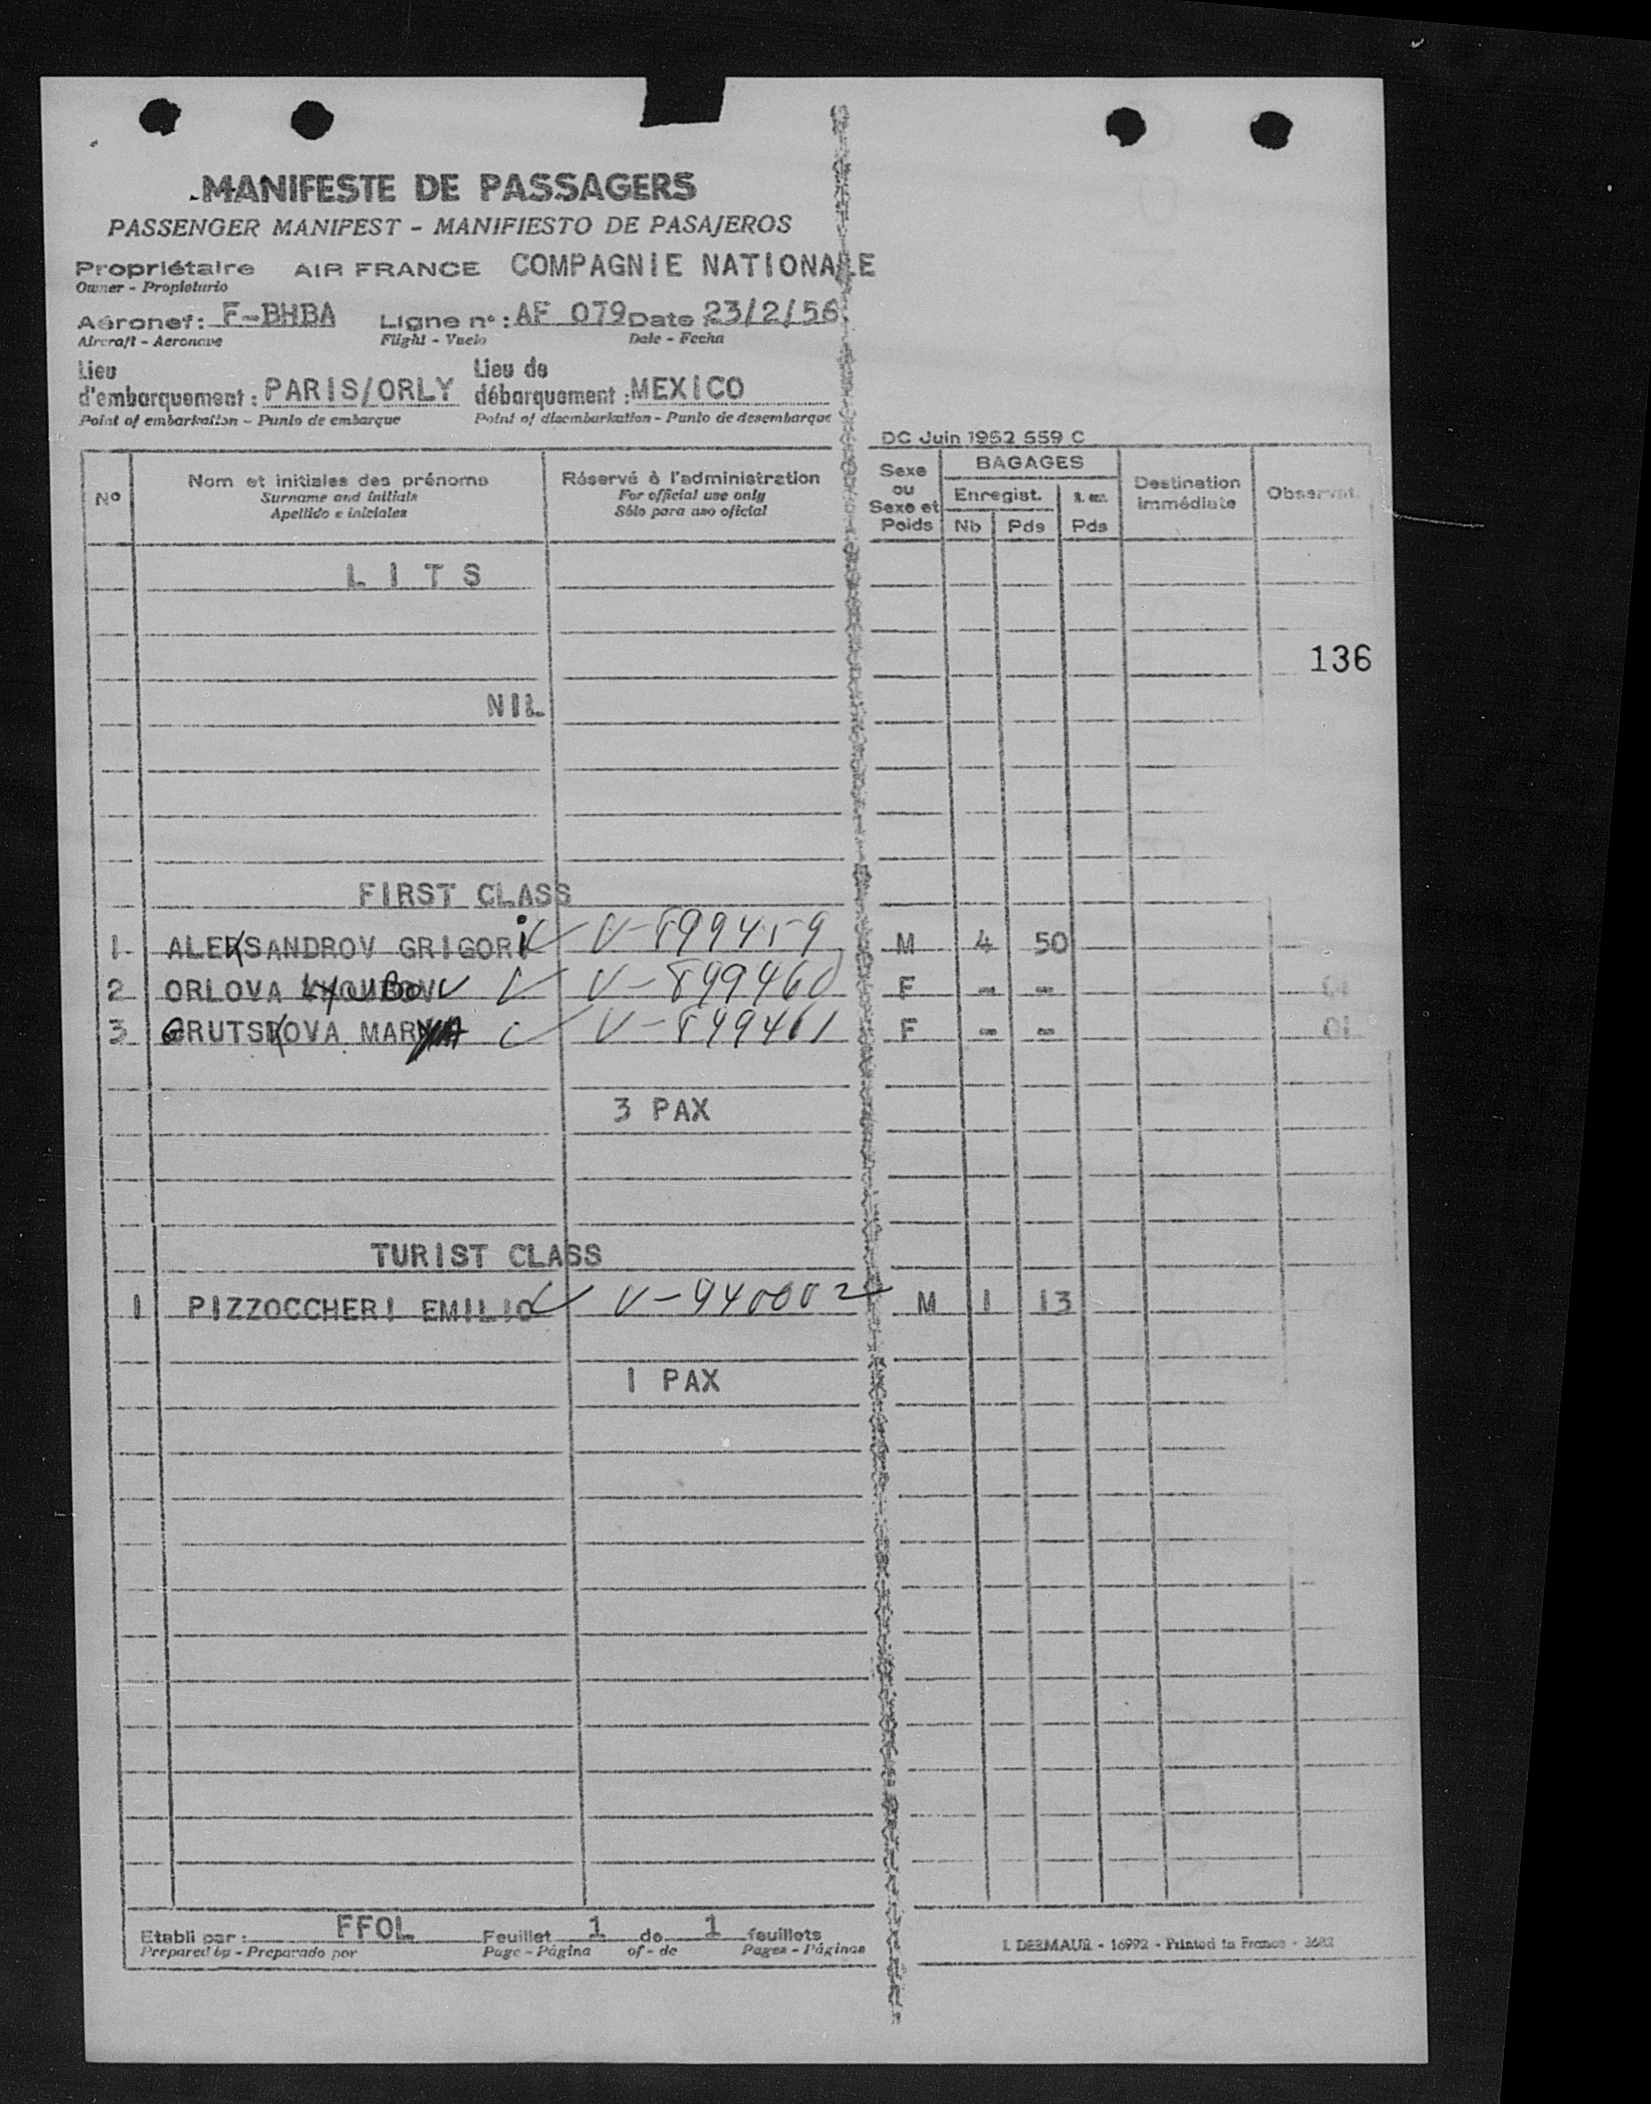 MANIFESTE DE PASSAGERS
PASSENGER MANIFEST - MANIFIESTO DE PASAJEROS
Propriétaire AIR FRANCE COMPAGNIE NATIONALE
Owner - Propietario
Aéronef: F-BHBA Ligne n°: AF 079 Date 23/2/56
Aircraft - Aeronave Flight - Vuelo Date - Fecha
Lieu d'embarquement: PARIS/ORLY Lieu de débarquement: MEXICO
Point of embarkation - Punto de embarque Point of disembarkation - Punto de desembarque
DC Juin 1952 559 C
Nº Nom et initiales des prénoms Réservé à l'administration Sexe ou Sexe et Poids BAGAGES Destination immédiate Observat.
Surname and initials For official use only Enregist.
Apellido e iniciales Sólo para uso oficial Nb Pds Pds
LITS
136
NIL
FIRST CLASS
1 ALEKSANDROV GRIGORI V-899459 M 4 50
2 ORLOVA V-899460 F - -
3 GRUTSKOVA V-899461 F - -
3 PAX
TURIST CLASS
1 PIZZOCCHERI EMILIO V-940002 M 1 13
1 PAX
Etabli par: FFOL Feuillet 1 de 1 feuillets
Prepared by - Preparado por Page - Página of - de Pages - Páginas
I. DERMAUR - 16992 - Printed in France